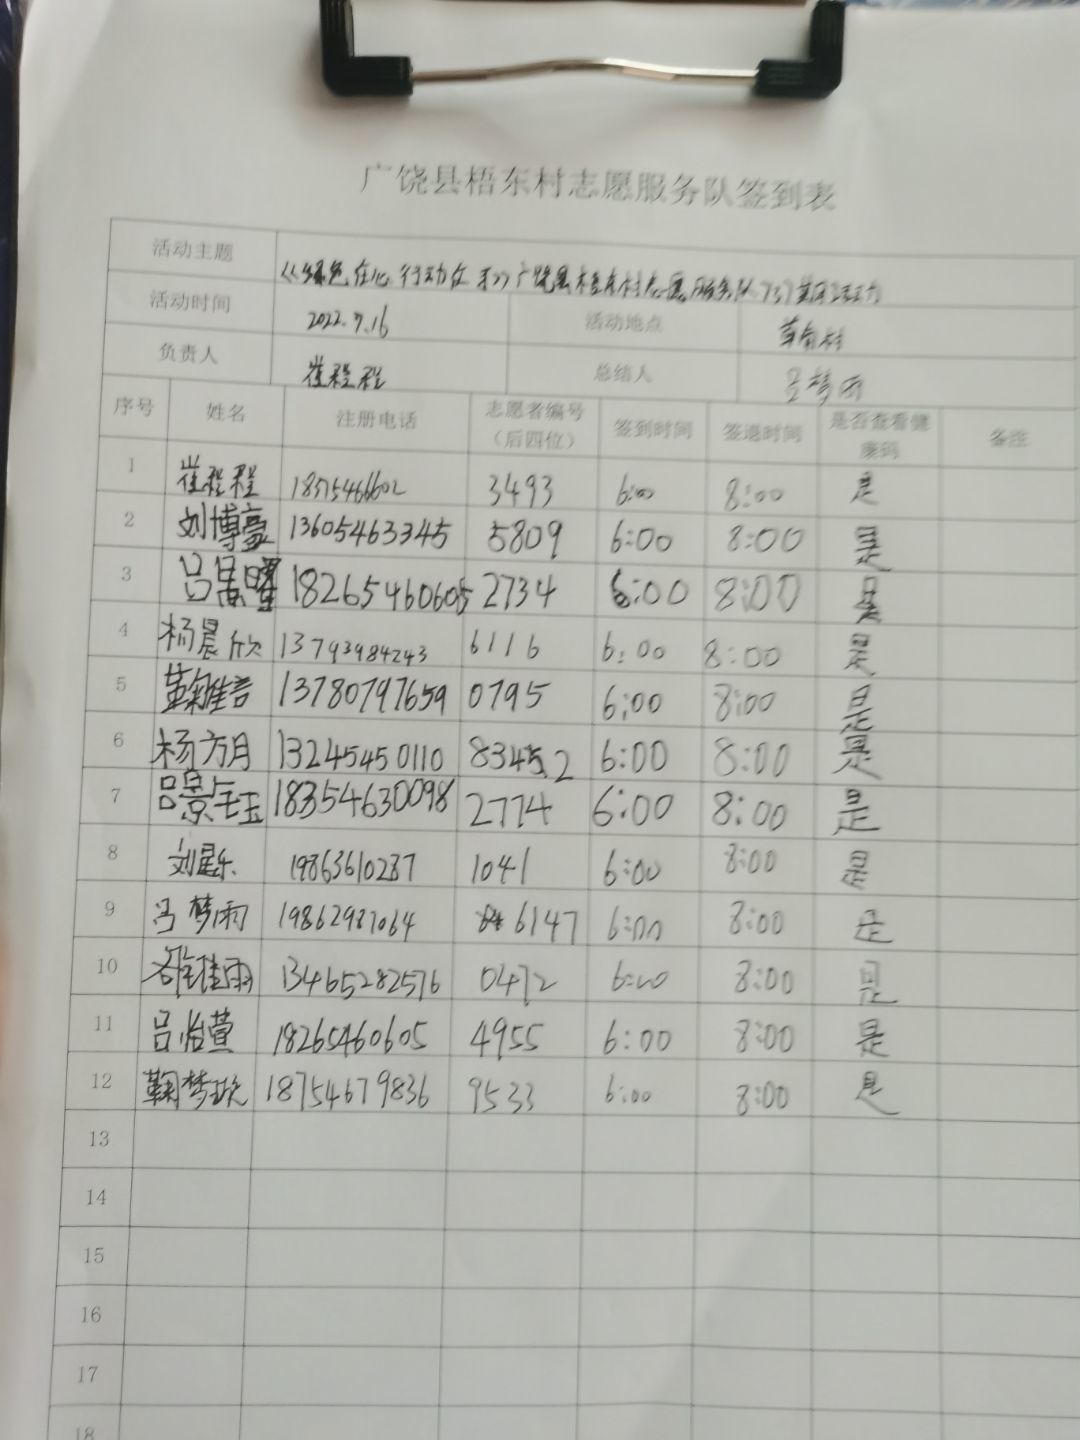 广饶县梧东村志愿服务队签到表
活动主题 《绿色在心 行动在 》广饶县梧东村志愿服务队757期活动
活动时间 2022.7.16 活动地点
负责人 崔程程 总结人
序号 姓名 注册电话 志愿者编号(后四位) 签到时间 签退时间 是否查看健康码 备注
1 崔程程 3493 6:00 8:00 是
2 刘博豪 13605463345 5809 6:00 8:00 是
3 吕景曜 18265460605 2734 6:00 8:00 是
4 杨晨欣 13793984243 6116 6:00 8:00 是
5 13780797659 0795 6:00 8:00 是
6 杨方月 13245450110 8345.2 6:00 8:00 是
7 吕景钰 18354630098 2774 6:00 8:00 是
8 刘星乐 19863610287 1041 6:00 8:00 是
9 冯梦雨 19862987064 6147 6:00 8:00 是
10 13465282576 0472 6:00 8:00 是
11 吕怡萱 18265460605 4955 6:00 8:00 是
12 鞠梦欣 18754679836 9533 6:00 8:00 是
13
14
15
16
17
18